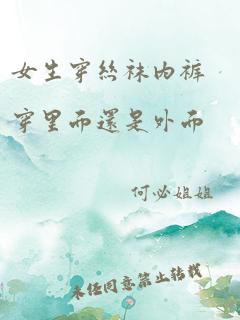 女生穿丝袜内裤
穿里面還是外面
何必姐姐
未经同意禁止转载